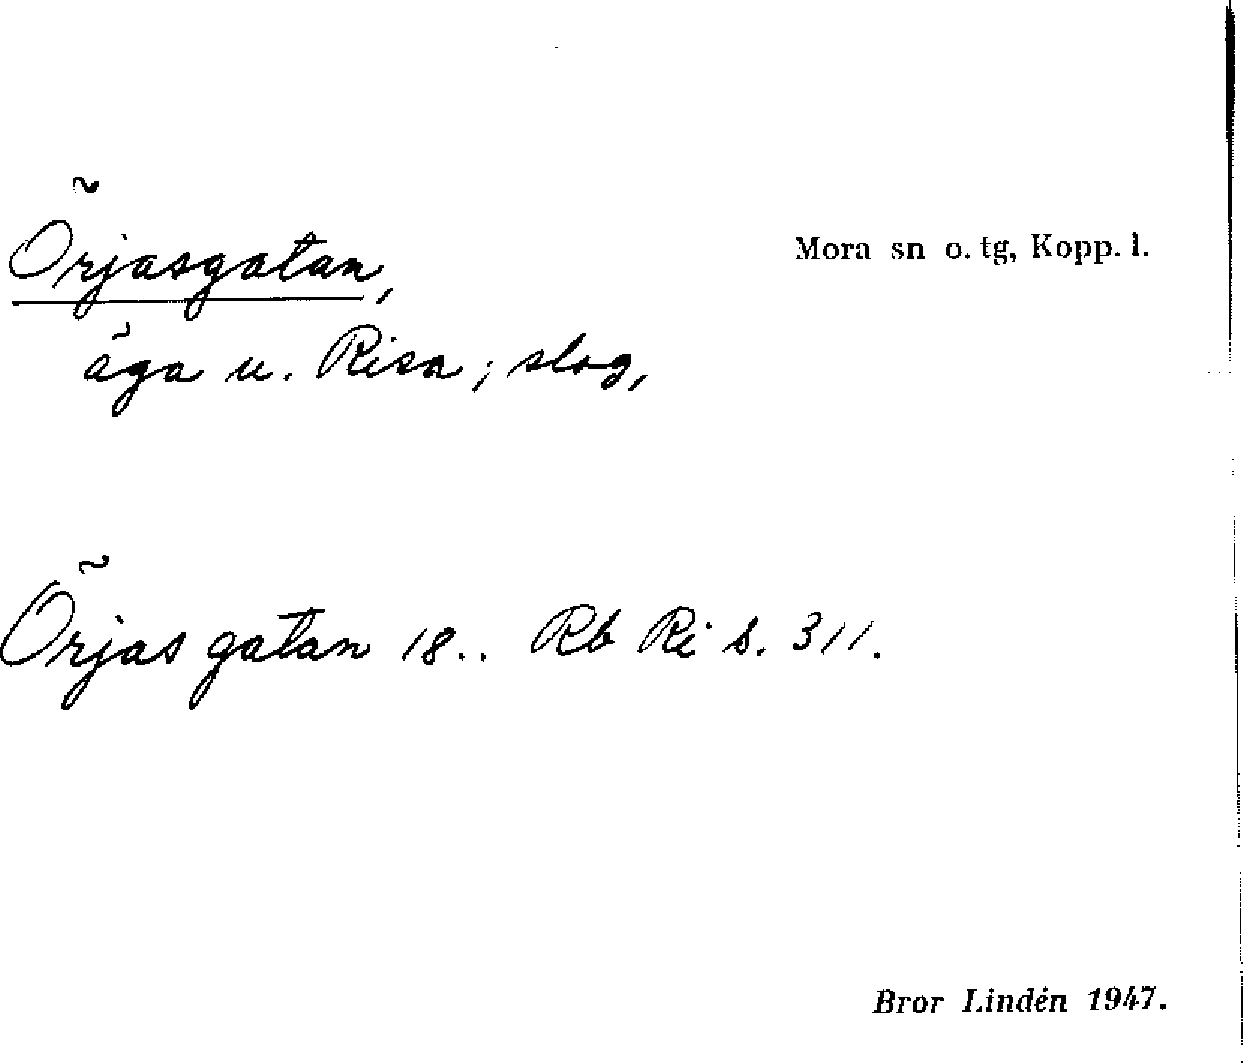 Örjasgatan,
Mora sn o. tg, Kopp. l.
äga u. Risa; slog,
Örjas gatan 18.. Rb Ri s. 311.
Bror Lindén 1947.